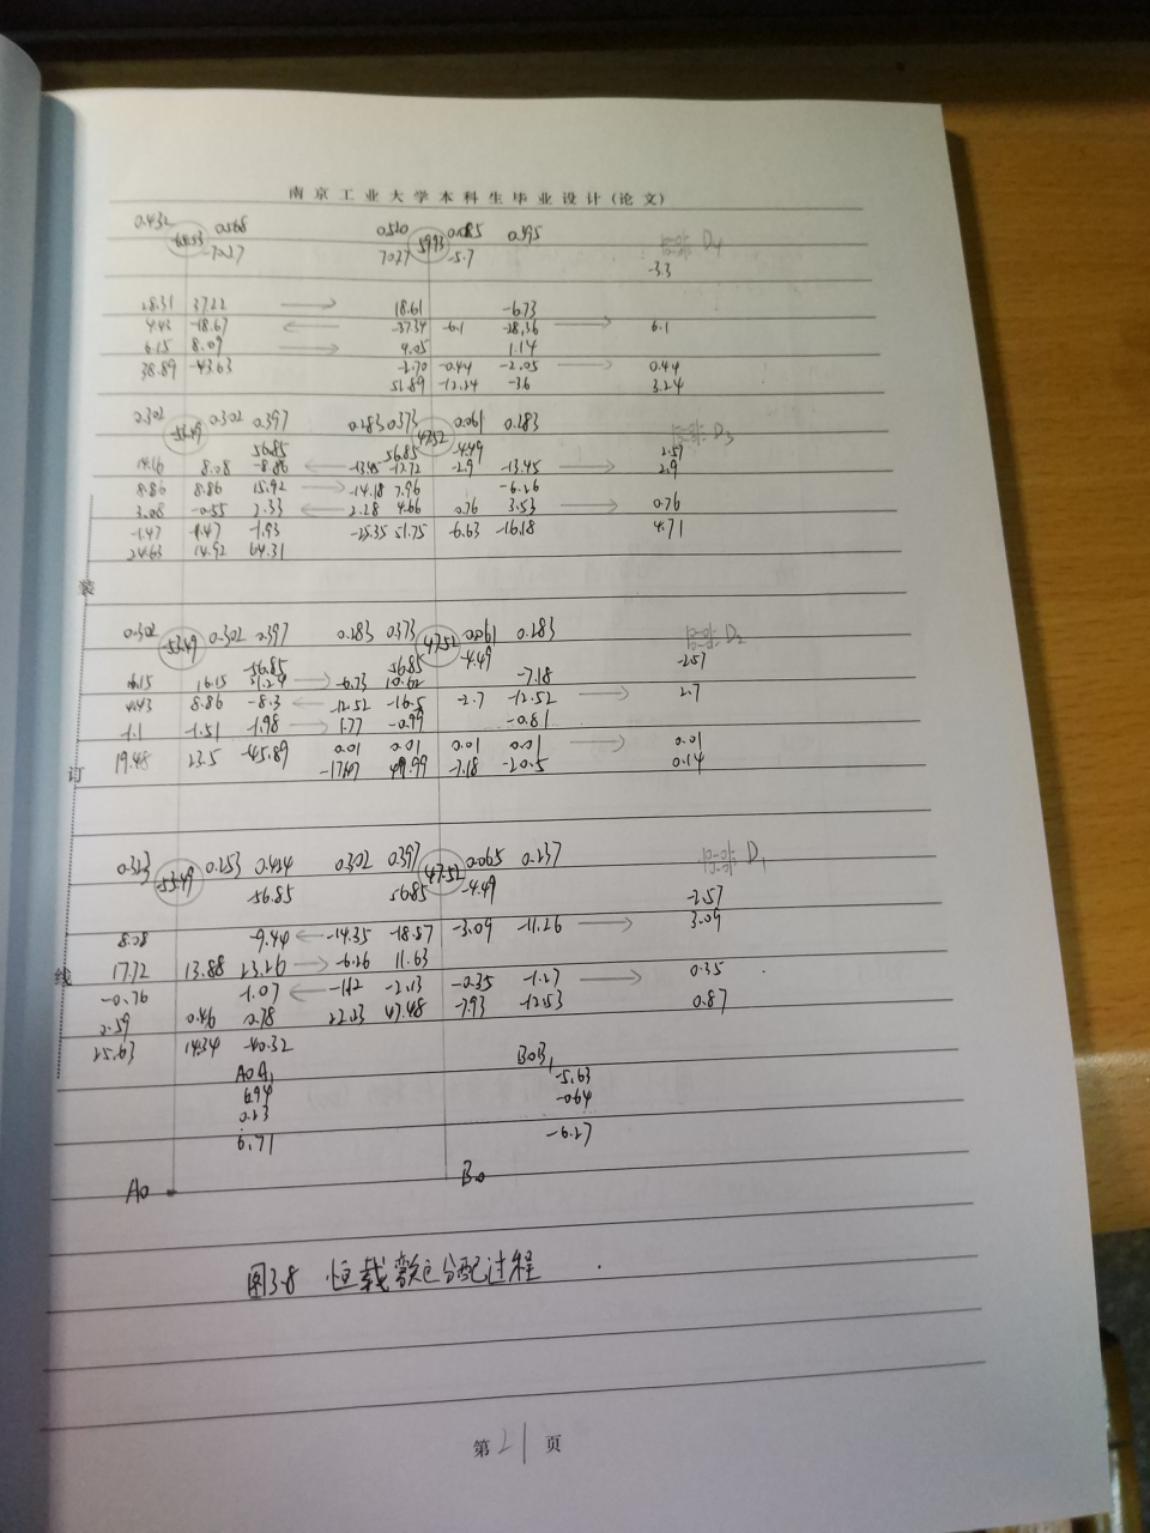 南京工业大学本科生毕业设计(论文)
0.432 0.568 0.520 0.085 0.395
-64.53 59.93
-70.27 70.27 -5.7
-3.3
28.31 37.22 → 18.61 -6.73
4.43 -18.67 ← -37.34 -6.1 -28.36 → 6.1
6.15 8.09 → 4.05 1.14
38.89 -43.63 -2.70 -0.44 -2.05 → 0.44
51.89 -12.24 -36 3.24
0.302 0.302 0.397 0.283 0.373 0.061 0.283
-53.49 47.52 D3
-56.85 56.85 -4.49 -2.57
14.16 8.08 -8.86 ← -13.45 -17.72 -2.9 -13.45 → 2.9
8.86 8.86 15.92 → -14.18 7.96 -6.26
3.08 -0.55 2.33 ← 2.28 4.66 0.76 3.53 → 0.76
-1.47 -1.47 -1.93 -25.35 51.75 -6.63 -16.18 4.71
24.63 14.92 64.31
装
0.302 0.302 0.397 0.283 0.373 0.061 0.283
-53.49 47.52 D2
-56.85 56.85 -4.49 -2.57
16.15 16.15 21.24 → -6.73 10.62 -7.18
4.43 8.86 -8.3 ← -12.52 -16.5 -2.7 -12.52 → 2.7
-1.1 -1.51 -1.98 → 1.77 -0.99 -0.81
19.48 23.5 -45.89 0.01 0.01 0.01 0.01 → 0.01
订 -17.47 49.99 -7.18 -20.5 0.14
0.323 0.253 0.424 0.302 0.397 0.065 0.237
-53.49 47.52 D1
-56.85 56.85 -4.49 -2.57
8.08 -9.44 ← -14.35 -18.87 -3.09 -11.26 → 3.09
线 17.72 13.88 23.26 → -6.26 11.63
-0.76 -1.07 ← -1.62 -2.13 -0.35 -1.27 → 0.35
0.59 0.46 0.78 22.23 47.48 -7.93 -12.53 0.87
25.63 14.34 -40.32
A0A1 B0B1
6.94 -5.63
0.23 -0.64
6.71 -6.27
A0 B0
图3-8 恒载弯矩分配过程
第21页